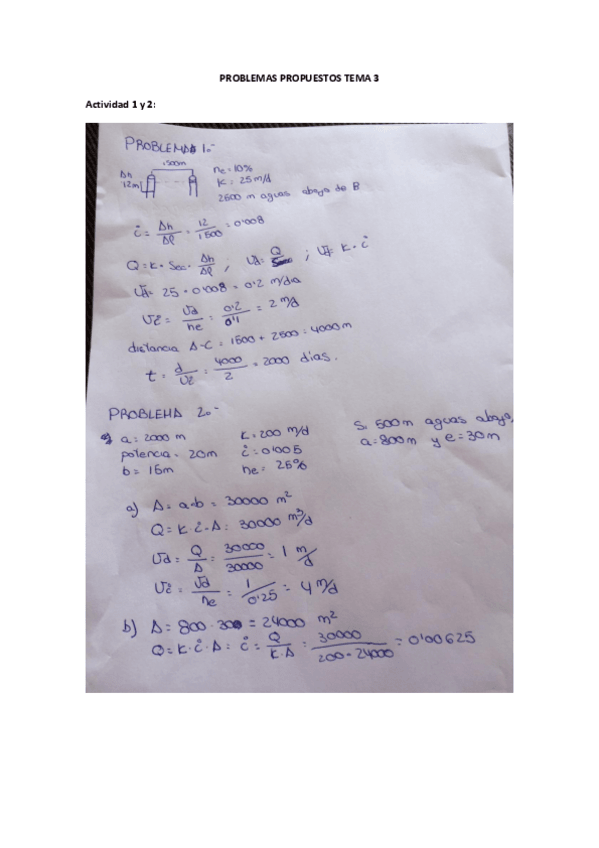 PROBLEMAS PROPUESTOS TEMA 3
Actividad 1 y 2:
PROBLEMA 1.-
1500m
Δh
12m
ne = 10%
K = 25 m/d
2500 m aguas abajo de B
i = Δh/Δl = 12/1500 = 0'008
Q = K · Sec · Δh/Δl ; Vd = Q/Sec ; Vd = K · i
Vd = 25 · 0'008 = 0'2 m/dia
Vē = Vd/ne = 0'2/0'1 = 2 m/d
distancia A-C = 1500 + 2500 = 4000m
t = d/Vē = 4000/2 = 2000 dias.
PROBLEMA 2.-
a = 2000 m K = 200 m/d Si 500m aguas abajo,
potencia = 20m i = 0'005 a = 800m y e = 30m
b = 15m ne = 25%
a) A = a·b = 30000 m²
Q = K · i · A = 30000 m³/d
Vd = Q/A = 30000/30000 = 1 m/d
Vē = Vd/ne = 1/0'25 = 4 m/d
b) A = 800 · 30 = 24000 m²
Q = K · i · A = i = Q/K·A = 30000/200 · 24000 = 0'00625